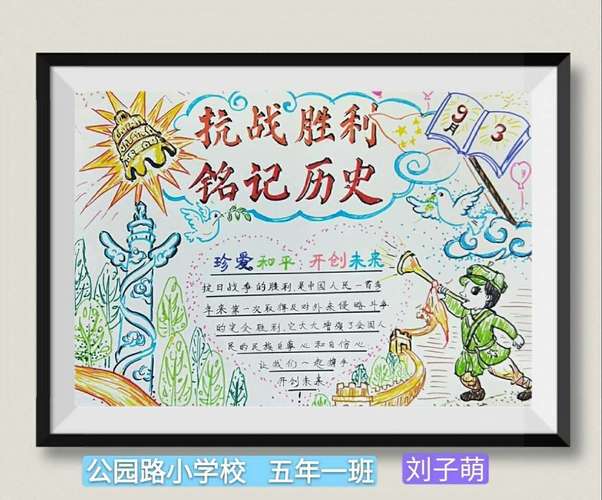 抗战胜利
铭记历史
9月 3
珍爱和平 开创未来
抗日战争的胜利,是中国人民一百多
年来第一次取得反对外来侵略斗争
的完全胜利,它大大增强了全国人
民的民族自尊心和自信心
让我们一起携手
开创未来
公园路小学校 五年一班 刘子萌